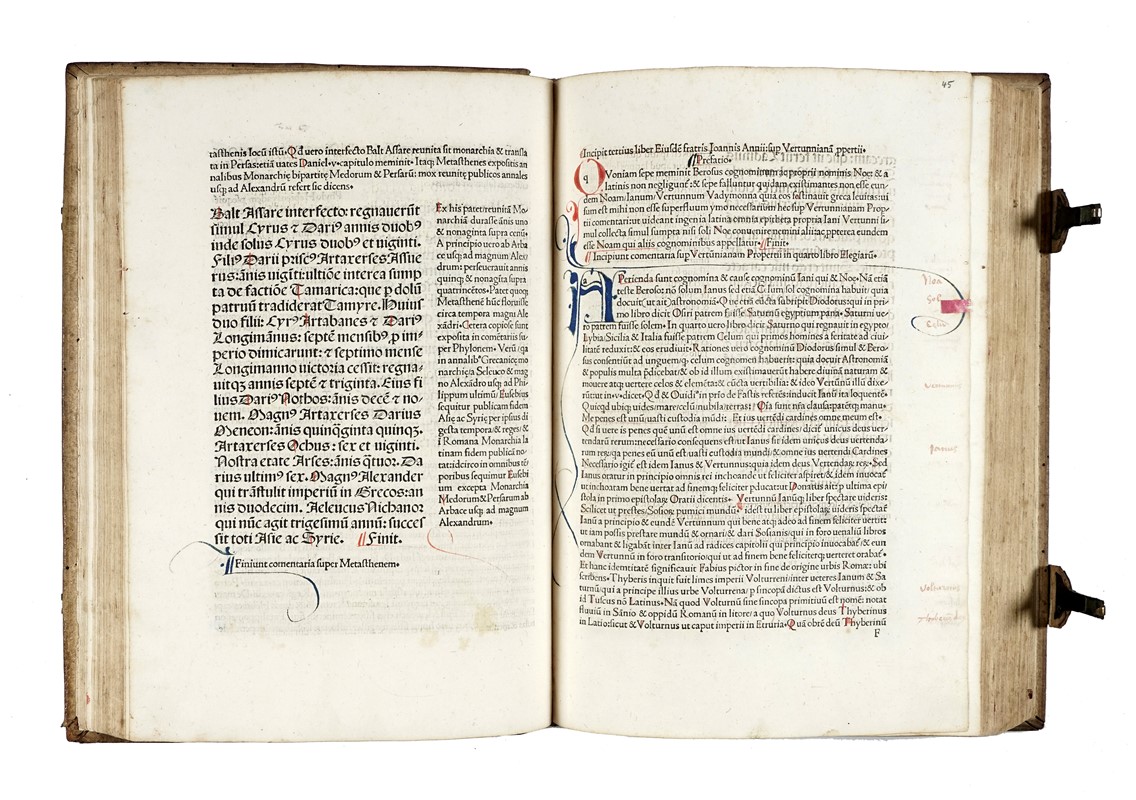 tasthenis locũ istũ. Qd uero interfecto Balt Assare reunita sit monarchia & transla
ta in Persas: etiã uates Daniel .v. capitulo meminit. Itaq; Metasthenes expositis an
nalibus Monarchię bipartitę Medorum & Persarũ: mox reunitę publicos annales
usq; ad Alexandrũ refert sic dicens.
Balt Assare interfecto: regnauerũt
simul Cyrus ⁊ Dariꝰ annis duobꝰ
inde solus Cyrus duobꝰ et viginti.
Filiꝰ Darii priscꝰ Artaxerses Assue
rus: ãnis vigĩti: ultiõe interea sump
ta de factiõe Tamarica: que p dolũ
patruũ tradiderat Tamyre. Huius
duo filii: Cyrꝰ Artabanes ⁊ Dariꝰ
Longimãnus: septẽ mensibꝰ p im/
perio dimicarunt: ⁊ septimo mense
Longimanno victoria cessit: regna/
uitq; annis septẽ ⁊ triginta. Eius fi
lius Dariꝰ Nothos: ãnis decẽ ⁊ no/
uem. Magnꝰ Artaxerses Darius
Meneon: ãnis quinq̃ginta quinq;.
Artaxerses Ochus: sex et viginti.
Nostra etate Arses: ãnis q̃tuor. Da
rius ultimꝰ sex. Magnꝰ Alexander
qui trãstulit imperiũ in Grecos: an
nis duodecim. Aeleucus Nichanor
qui nũc agit trigesimũ annũ: succes
sit toti Asie ac Syrie. Finit.
Ex his patet: reunitã Mo
narchiã durasse ãnis uno
& nonaginta supra cenũ.
A principio uero ab Arba
ce usq; ad magnum Alex/
drum: perseuerauit annis
quinq; & nonagĩta supra
quatrincẽtos. Patet quoq;
Metasthenẽ hũc floruisse
circa tempora magni Ale
xãdri. Cetera copiose sunt
exposita in cõmẽtariis su/
per Phylonem. Verũ quia
in annalibꝰ Grecanicę mo
narchię a Seleuco & mag
no Alexãdro usq; ad Phi/
lippum ultimũ: Eusebius
sequitur publicam fidem
Asię ac Syrię per ipsius di
gesta tempora & reges: &
ĩ Romana Monarchia la
tinam fidem publicã no/
tat: idcirco in omnibus tẽ
poribus sequimur Eusebi
um excepta Monarchia
Medorum & Persarum ab
Arbace usq; ad magnum
Alexandrum.
Finiunt comentaria super Metasthenem.
45
Incipit tertius liber Eiusdẽ fratris Ioannis Annii: sup Vertunianã ppertii.
Prefatio.
QVoniam sepe meminit Berosus cognominum ac proprii nominis Noe: & a
latinis non negligunt: & sepe falluntur quidam existimantes non esse eun/
dem Noam: Ianum: Vertunnum Vadymona quia eos festinauit greca leuitas: ui
sum est mihi non esse superfluum ymo necessarium hec sup Vertunnianam Prop/
tii comentari: ut uideant ingenia latina omnia epitheta propria Iani Vertunni si/
mul collecta simul sumpta nisi soli Noe conuenire nemini alii: ac ppterea eundem
esse Noam qui aliis cognominibus appellatur. Finit.
Incipiunt comentaria sup Vertunianam Propertii in quarto libro Elegiarũ.
APerienda sunt cognomina & cause cognominũ Iani qui & Noe. Nã etiã
teste Beroso: nõ solum Ianus sed etiã Celum sol cognomina habuit: quia
docuit: ut ait: astronomiã. Que etiã dicta subripiẽs Diodorus: qui in pri/
mo libro dicit Osiri patrem fuisse Saturnũ egyptium pana. Saturni ue/
ro patrem fuisse solem. In quarto uero libro dicit Saturno qui regnauit in egypto/
Lybia/Sicilia & Italia fuisse patrem Celum qui primos homines a feritate ad ciui/
litatẽ reduxit: & eos erudiuit. Rationes uero cognominũ Diodorus simul & Bero/
sus consentiũt ad unguem: q; celum cognomen habuerit: quia docuit Astronomiã
& populis multa pdicebat: & ob id illum existimauerũt habere diuinã naturam &
mouere atq; uertere celos & elemẽta: & cũcta uertibilia: & ideo Vertũnũ illũ dixe/
rũt: ut in .v. dicet. Qd & Ouidiꝰ in primo de Fastis referẽs: inducit Ianũ ita loquentẽ.
Quicqd ubiq; uides/mare/celũ nubila/terras: Oĩa sunt nr̃a clausa: patẽtq; manu.
Me penes est unũ uasti custodia mũdi: Et ius uertẽdi cardinis omne meum est.
Qd si uere is penes quẽ unũ est omne ius uertẽdi cardines: dicit unicus deus uer/
tendarũ rerum: necessario consequens est: ut Ianus sit idem unicus deus uertenda
rum req; qa penes eũ unũ est: uasti custodia mundi: & omne ius uertendi Cardines
Necessario igit est idem Ianus & Vertunnus: quia idem deus Vertendaꝝ reꝝ. Sed
Ianus oratur in principio omnis rei inchoande ut feliciter aspiret: & idem inuocat
ut inchoatam bene uertat ad finemq; feliciter pducat: ut Donatus ait: p ultima epi/
stola in primo epistolaꝝ Oratii dicentis. Vertunnũ Ianũq; liber spectare uideris:
Scilicet ut prestes/Sosioꝝ pumici mundũ. idest tu liber epistolaꝝ uideris spectare
Ianũ a principio & eundẽ Vertunnum qui bene atq; adeo ad finem feliciter uertit:
ut iam possis prestare mundũ & ornari/& dari Sosianis: qui in foro uenaliũ libros
ornabant & ligabãt inter Ianũ ad radices capitolii qui principio inuocabat/ & eun
dem Vertunnũ in foro transitorio: qui ut ad finem bene feliciterq; uerteret orabat.
Et hanc identitatẽ significauit Fabius pictor in fine de origine urbis Romæ: ubi
scribens. Thyberis inquit fuit limes imperii Volturreni: inter ueteres Ianum & Sa
turnũ: qui a principe illius urbe Volturrena/ p sincopã dictus est Volturnus: & ob
id Tuscus nõ Latinus. Nã quod Volturnũ sine sincopa primitiuũ est nomẽ: notat
fluuiũ in Sãnio & oppidũ Romanũ in litore/ a quo Volturnus deus Thyberinus
in Latio: sicut & Volturnus ut caput imperii in Etruria. Quã obrẽ deũ Thyberinũ
F
Noa
Sol
Celũ
Vertunnus
Ianus
Volturnus